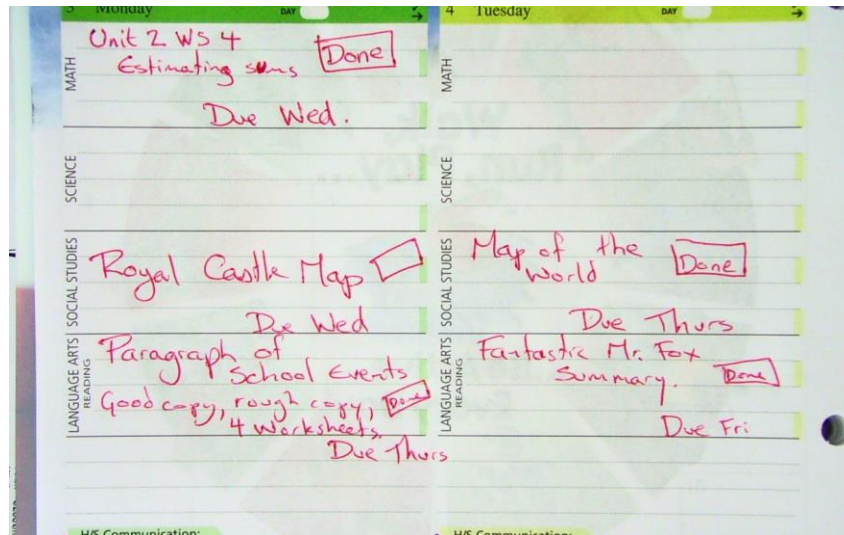 3 Monday DAY
MATH
Unit 2 WS 4
Estimating sums
Done
Due Wed.
SCIENCE
SOCIAL STUDIES
Royal Castle Map
Due Wed
LANGUAGE ARTS
READING
Paragraph of
School Events
Good copy, rough copy,
4 Worksheets.
Done
Due Thurs
H/S Communication:
4 Tuesday DAY
MATH
SCIENCE
SOCIAL STUDIES
Map of the
World
Done
Due Thurs
LANGUAGE ARTS
READING
Fantastic Mr. Fox
Summary.
Done
Due Fri
H/S Communication: